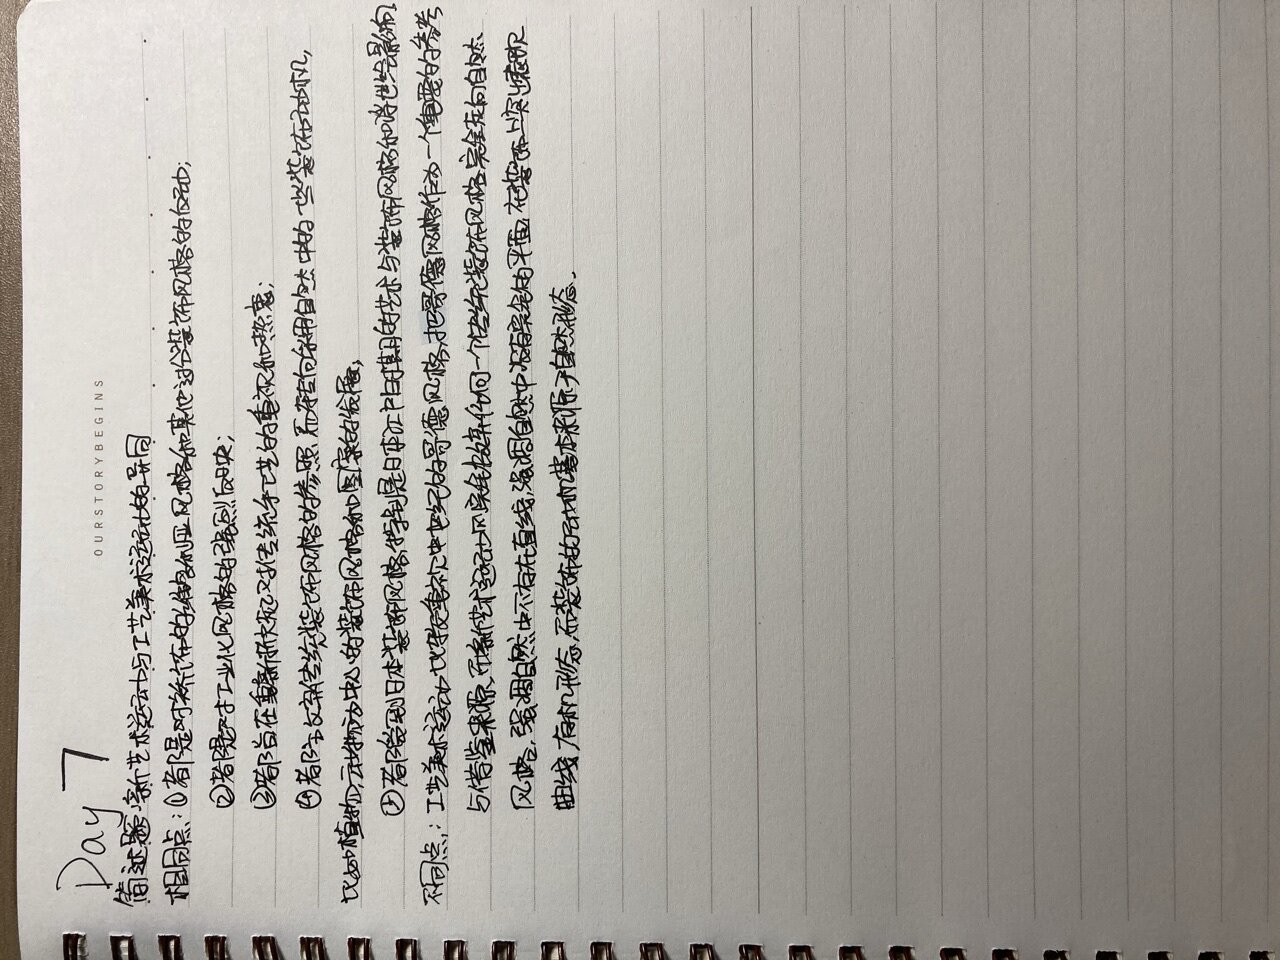 OURSTORYBEGINS
Day 7
简述题:新艺术运动与工艺美术运动的异同
相同点:①都是对矫饰的维多利亚风格和其他过分装饰风格的反动;
②都是对工业化风格的强烈反映;
③都旨在重新掀起对传统手工艺的重视和热衷;
④都放弃传统装饰风格的参照,而转向采用自然中的一些装饰动机,
比如植物,动物为中心的装饰风格和图案的发展;
⑤都受到日本装饰风格,特别是日本江户时期的艺术与装饰风格和浮世绘影响
不同点:工艺美术运动比较重视中世纪的哥德风格,把哥德风格作为一个重要的参考
与借鉴来源,而新艺术运动则完全放弃任何一个传统装饰风格,完全走向自然
风格,强调自然中不存在直线,强调自然中没有完全的平面,在装饰上突出表现
曲线,有机形态,而装饰的动机基本来源于自然形态.